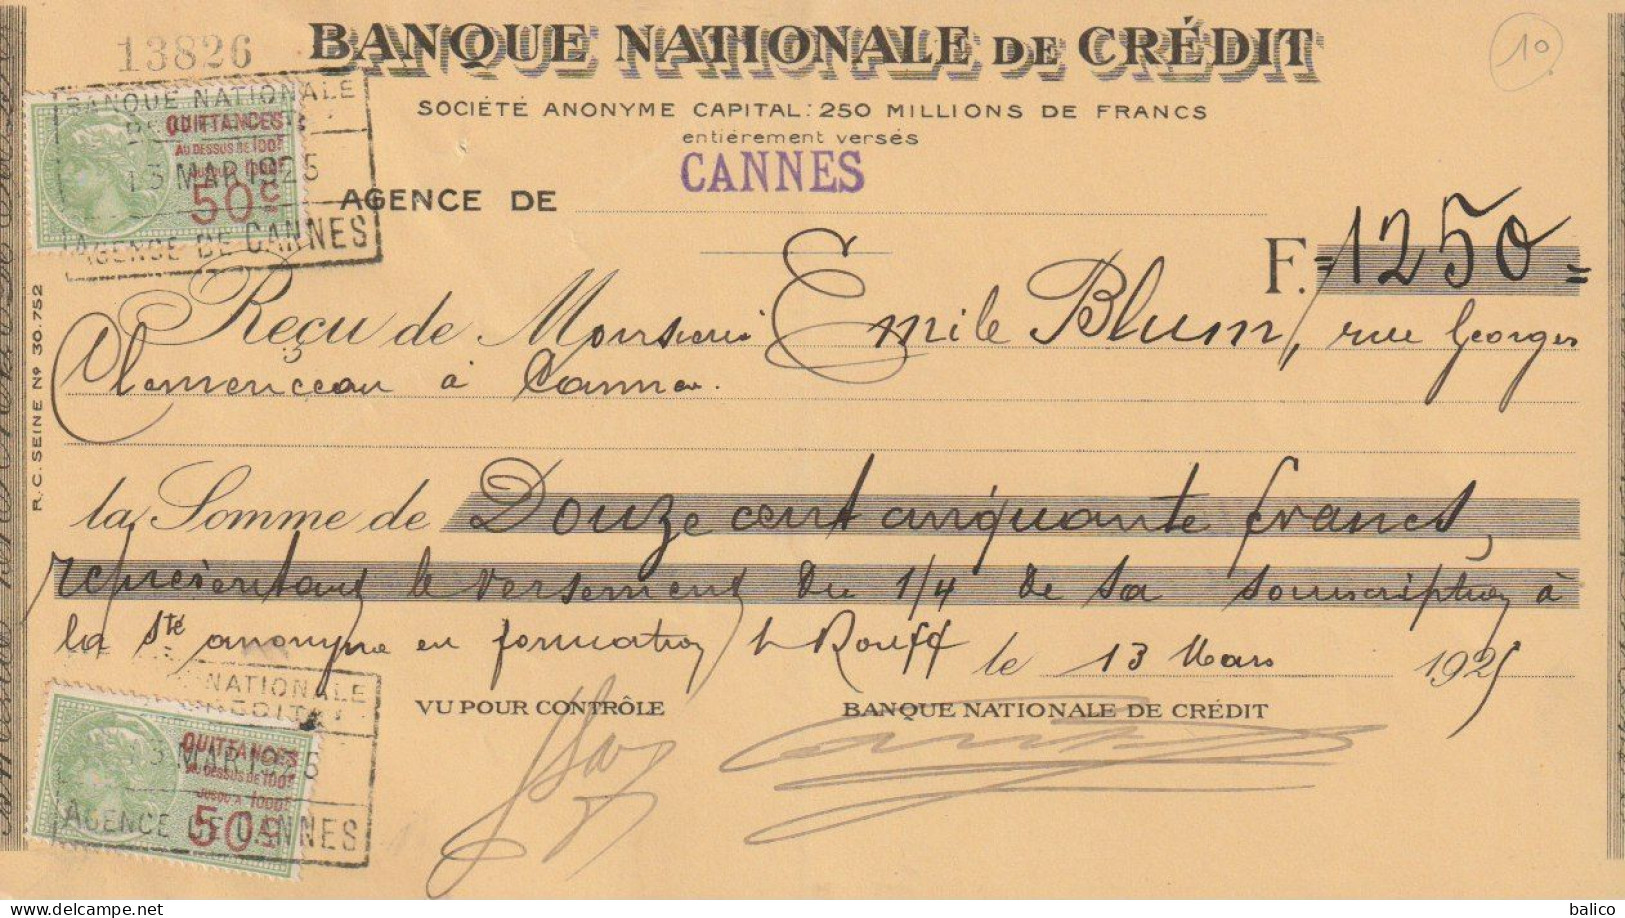 13826
BANQUE NATIONALE DE CRÉDIT
10
SOCIÉTÉ ANONYME CAPITAL: 250 MILLIONS DE FRANCS
entiérement versés
BANQUE NATIONALE
QUITTANCES
AU DESSUS DE 100F
JUSQU'A 1000F
50c
13 MAR 1925
AGENCE DE CANNES
AGENCE DE CANNES
F. =1250=
Reçu de Monsieur Emile Blum, rue Georges
Clemenceau à Cannes.
R.C. SEINE No 30.752
la Somme de Douze cent cinquante francs,
représentant le versement du 1/4 de sa souscription à
la Sté anonyme en formation Rouff le 13 Mars 1925
NATIONALE
CRÉDIT
VU POUR CONTRÔLE
BANQUE NATIONALE DE CRÉDIT
QUITTANCES
AU DESSUS DE 100F
JUSQU'A 1000F
50c
13 MAR 1925
AGENCE DE CANNES
balico